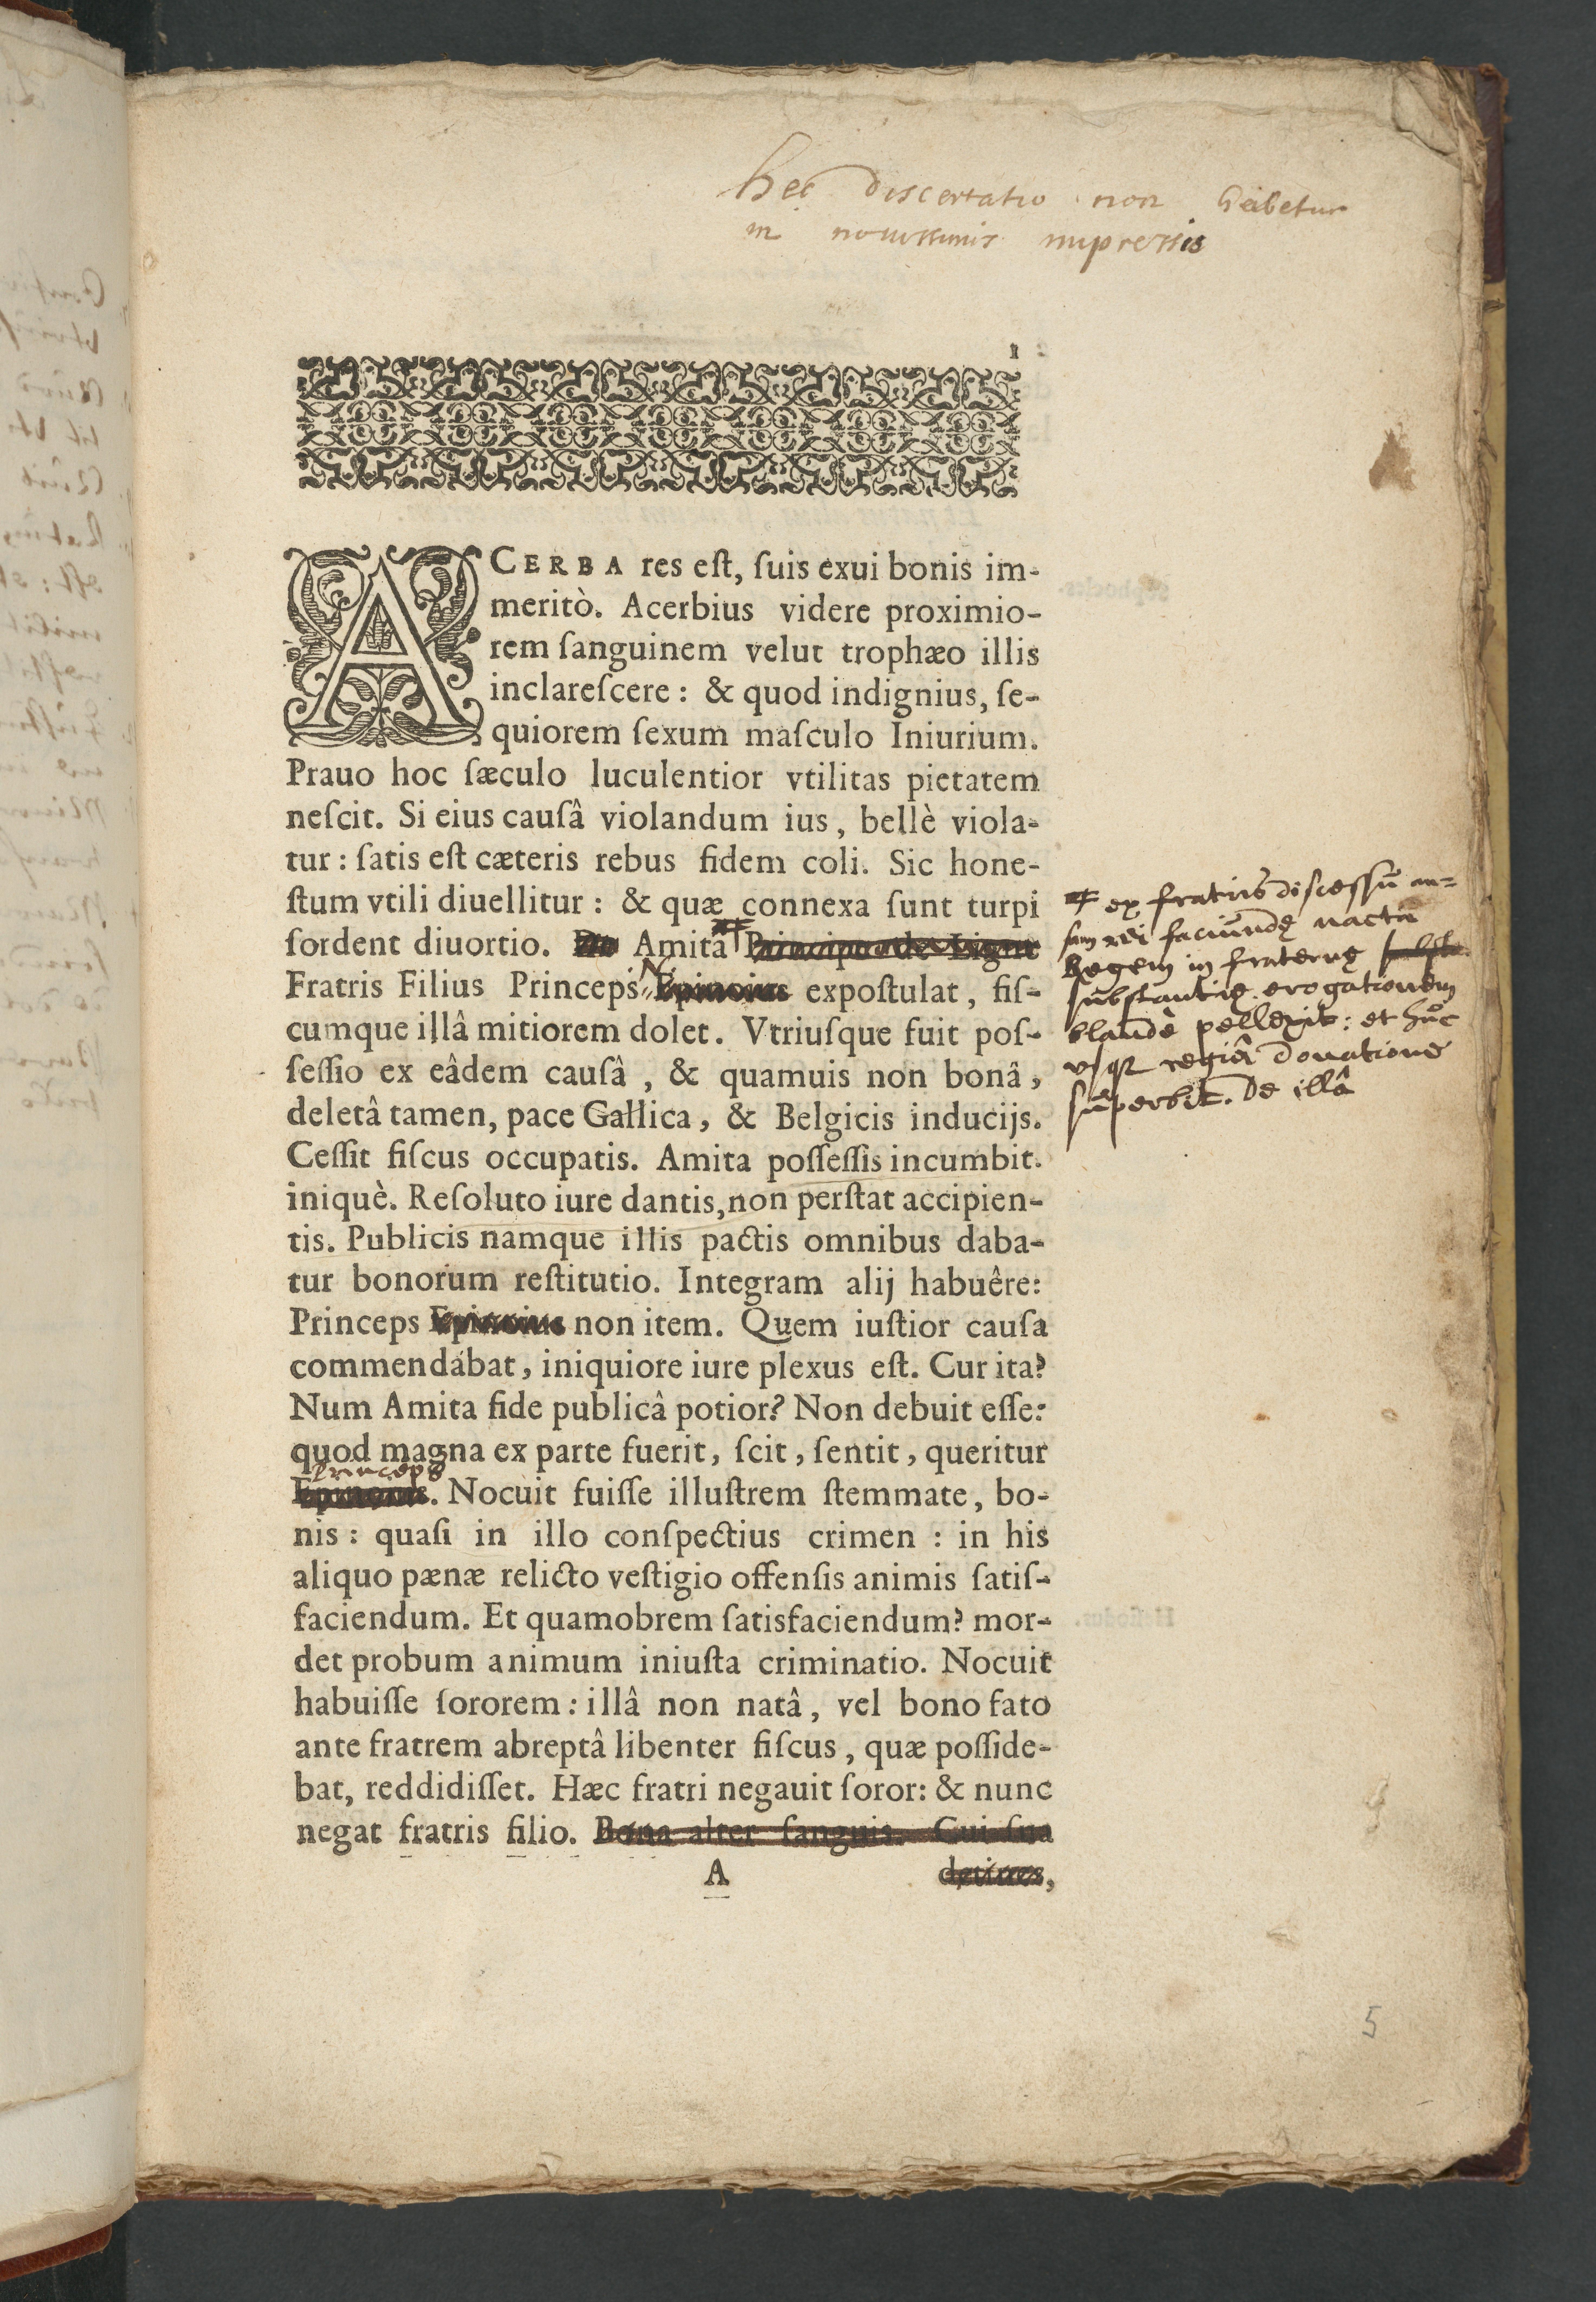 hec discertatio non habetur
in nouissimis impressis
1
ACERBA res est, ſuis exui bonis im-
meritò. Acerbius videre proximio-
rem ſanguinem velut trophæo illis
inclareſcere: & quod indignius, ſe-
quiorem ſexum maſculo Iniurium.
Prauo hoc ſæculo luculentior vtilitas pietatem
neſcit. Si eius cauſâ violandum ius, bellè viola-
tur: ſatis eſt cæteris rebus fidem coli. Sic hone-
ſtum vtili diuellitur: & quæ connexa ſunt turpi
ſordent diuortio. Amitâ Principe de Ligne
Fratris Filius Princeps N. Epinoius expoſtulat, fiſ-
cumque illâ mitiorem dolet. Vtriuſque fuit poſ-
ſeſſio ex eâdem cauſâ, & quamuis non bonâ,
deletâ tamen, pace Gallica, & Belgicis inducijs.
Ceſſit fiſcus occupatis. Amita poſſeſſis incumbit.
iniquè. Reſoluto iure dantis, non perſtat accipien-
tis. Publicis namque illis pactis omnibus daba-
tur bonorum reſtitutio. Integram alij habuêre:
Princeps Epinoius non item. Quem iuſtior cauſa
commendabat, iniquiore iure plexus eſt. Cur ita?
Num Amita fide publicâ potior? Non debuit eſſe:
quod magna ex parte fuerit, ſcit, ſentit, queritur
princeps
Epinoius. Nocuit fuiſſe illuſtrem ſtemmate, bo-
nis: quaſi in illo conſpectius crimen: in his
aliquo pænæ relicto veſtigio offenſis animis ſatiſ-
faciendum. Et quamobrem ſatisfaciendum? mor-
det probum animum iniuſta criminatio. Nocuit
habuiſſe ſororem: illâ non natâ, vel bono fato
ante fratrem abreptâ libenter fiſcus, quæ poſſide-
bat, reddidiſſet. Hæc fratri negauit ſoror: & nunc
negat fratris filio. Bona alter ſanguis. Cui ſua
A detines,
ex fratris discessu an=
sam rei faciundę nacta
Regem in fraternę
substantię erogationem
blandè pellexit: et huc
vsq regiâ donatione
superbit. De illâ
5